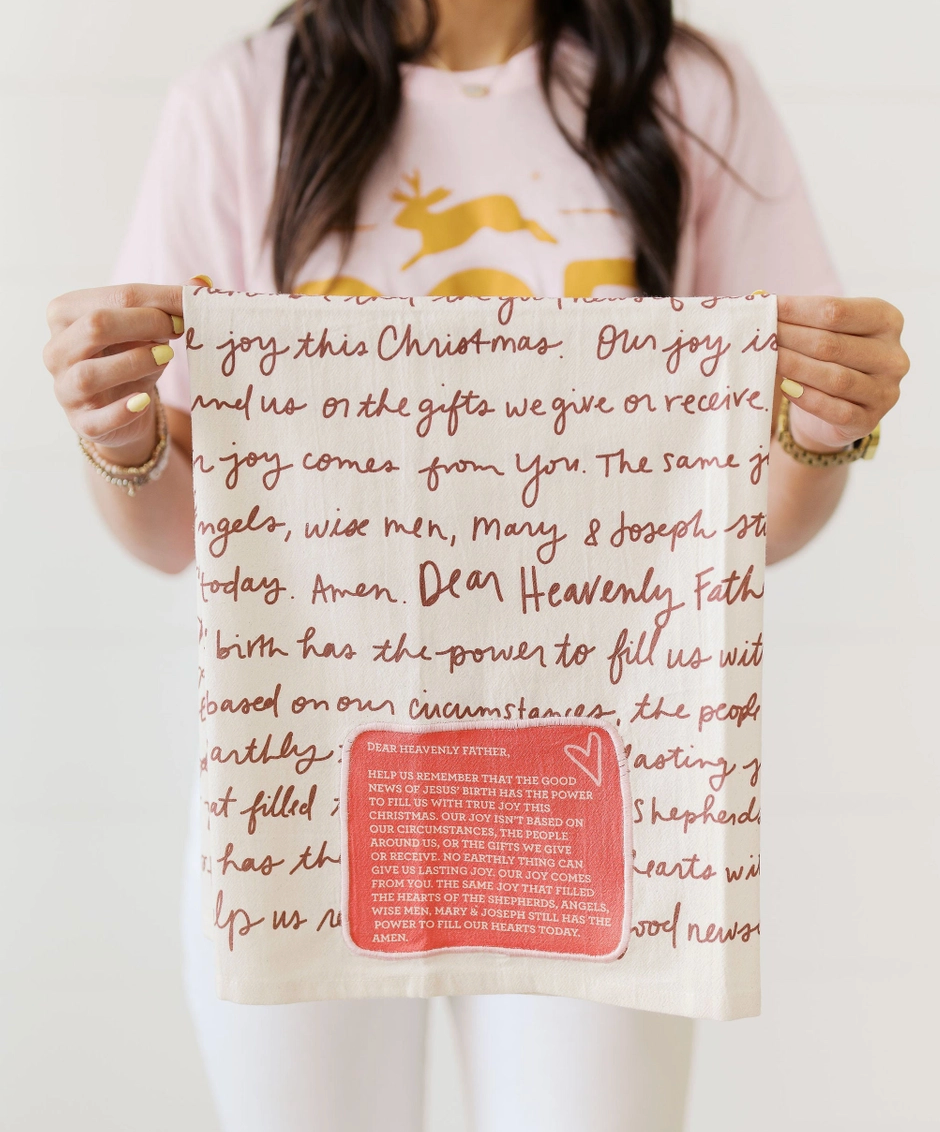 joy this Christmas. Our joy is
us or the gifts we give or receive.
joy comes from You. The same
angels, wise men, Mary & Joseph
today. Amen. Dear Heavenly Fath
birth has the power to fill us wit
based on our circumstances, the people
arthly
lasting
at filled
Shepherds
has th
hearts wi
lp us re
ood news
DEAR HEAVENLY FATHER,
HELP US REMEMBER THAT THE GOOD
NEWS OF JESUS' BIRTH HAS THE POWER
TO FILL US WITH TRUE JOY THIS
CHRISTMAS. OUR JOY ISN'T BASED ON
OUR CIRCUMSTANCES, THE PEOPLE
AROUND US, OR THE GIFTS WE GIVE
OR RECEIVE. NO EARTHLY THING CAN
GIVE US LASTING JOY. OUR JOY COMES
FROM YOU. THE SAME JOY THAT FILLED
THE HEARTS OF THE SHEPHERDS, ANGELS,
WISE MEN, MARY & JOSEPH STILL HAS THE
POWER TO FILL OUR HEARTS TODAY.
AMEN.